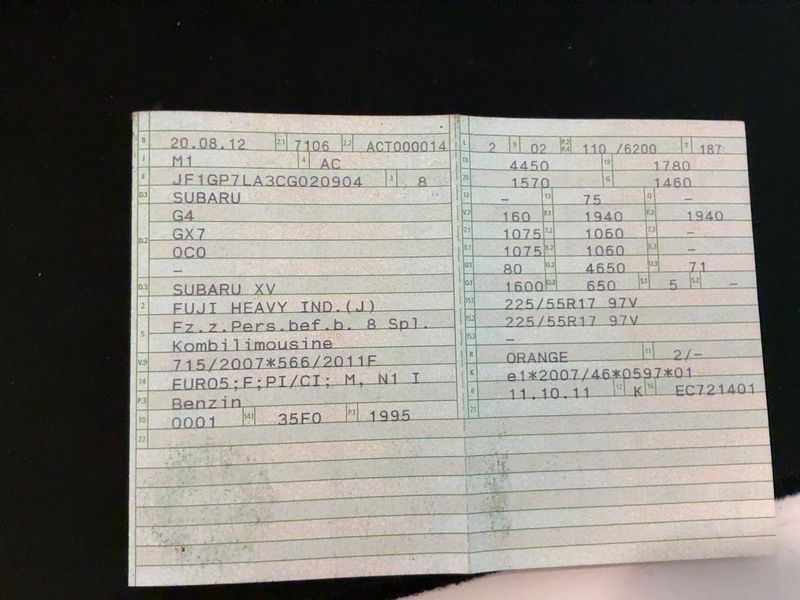 B 20.08.12 2.1 7106 2.2 ACT000014
J M1 4 AC
E JF1GP7LA3CG020904 3 8
D.1 SUBARU
G4
D.2 GX7
0C0
–
D.3 SUBARU XV
2 FUJI HEAVY IND.(J)
5 Fz.z.Pers.bef.b. 8 Spl.
Kombilimousine
V.9 715/2007*566/2011F
14 EURO5;F;PI/CI; M, N1 I
P.3 Benzin
10 0001 14.1 35F0 P.1 1995
22
L 2 9 02 P.2 P.4 110 /6200 T 187
18 4450 19 1780
20 1570 G 1460
12 – 13 75 Q –
V.7 160 F.1 1940 F.2 1940
7.1 1075 7.2 1060 7.3 –
8.1 1075 8.2 1060 8.3 –
U.1 80 U.2 4650 U.3 71
O.1 1600 O.2 650 S.1 5 S.2 –
15.1 225/55R17 97V
15.2 225/55R17 97V
15.3 –
R ORANGE 11 2/–
K e1*2007/46*0597*01
6 11.10.11 17 K 16 EC721401
21